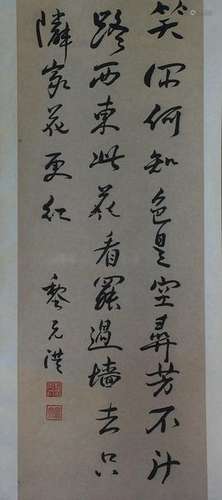 笑你何知色是空尋芳不計
路西東此花看罷過墻去只
隣家花更紅 黎元洪